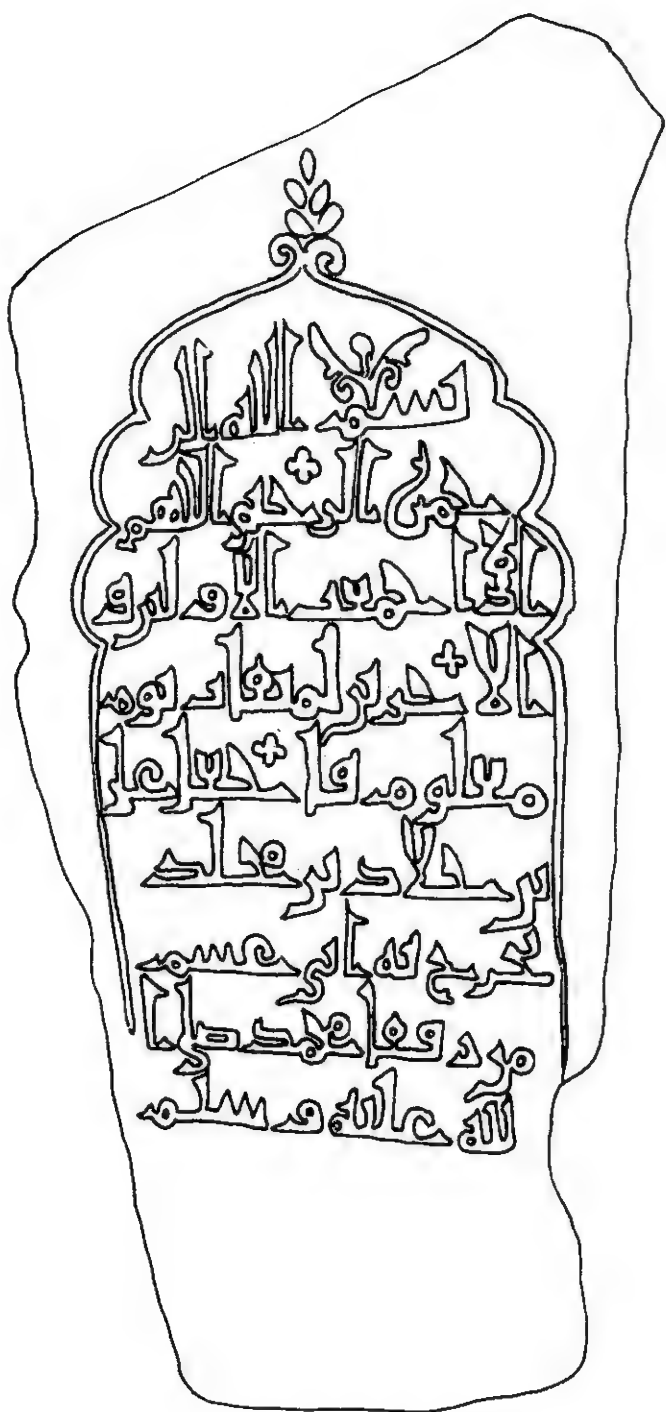 بسم الله الر
حمن الرحيم اللهم
اذا جمعت الاولين و
الاخرين لميقات يوم
معلوم فاجعل علي
بن خلاد بن
من رفقا محمد صلى ا
لله عليه وسلم